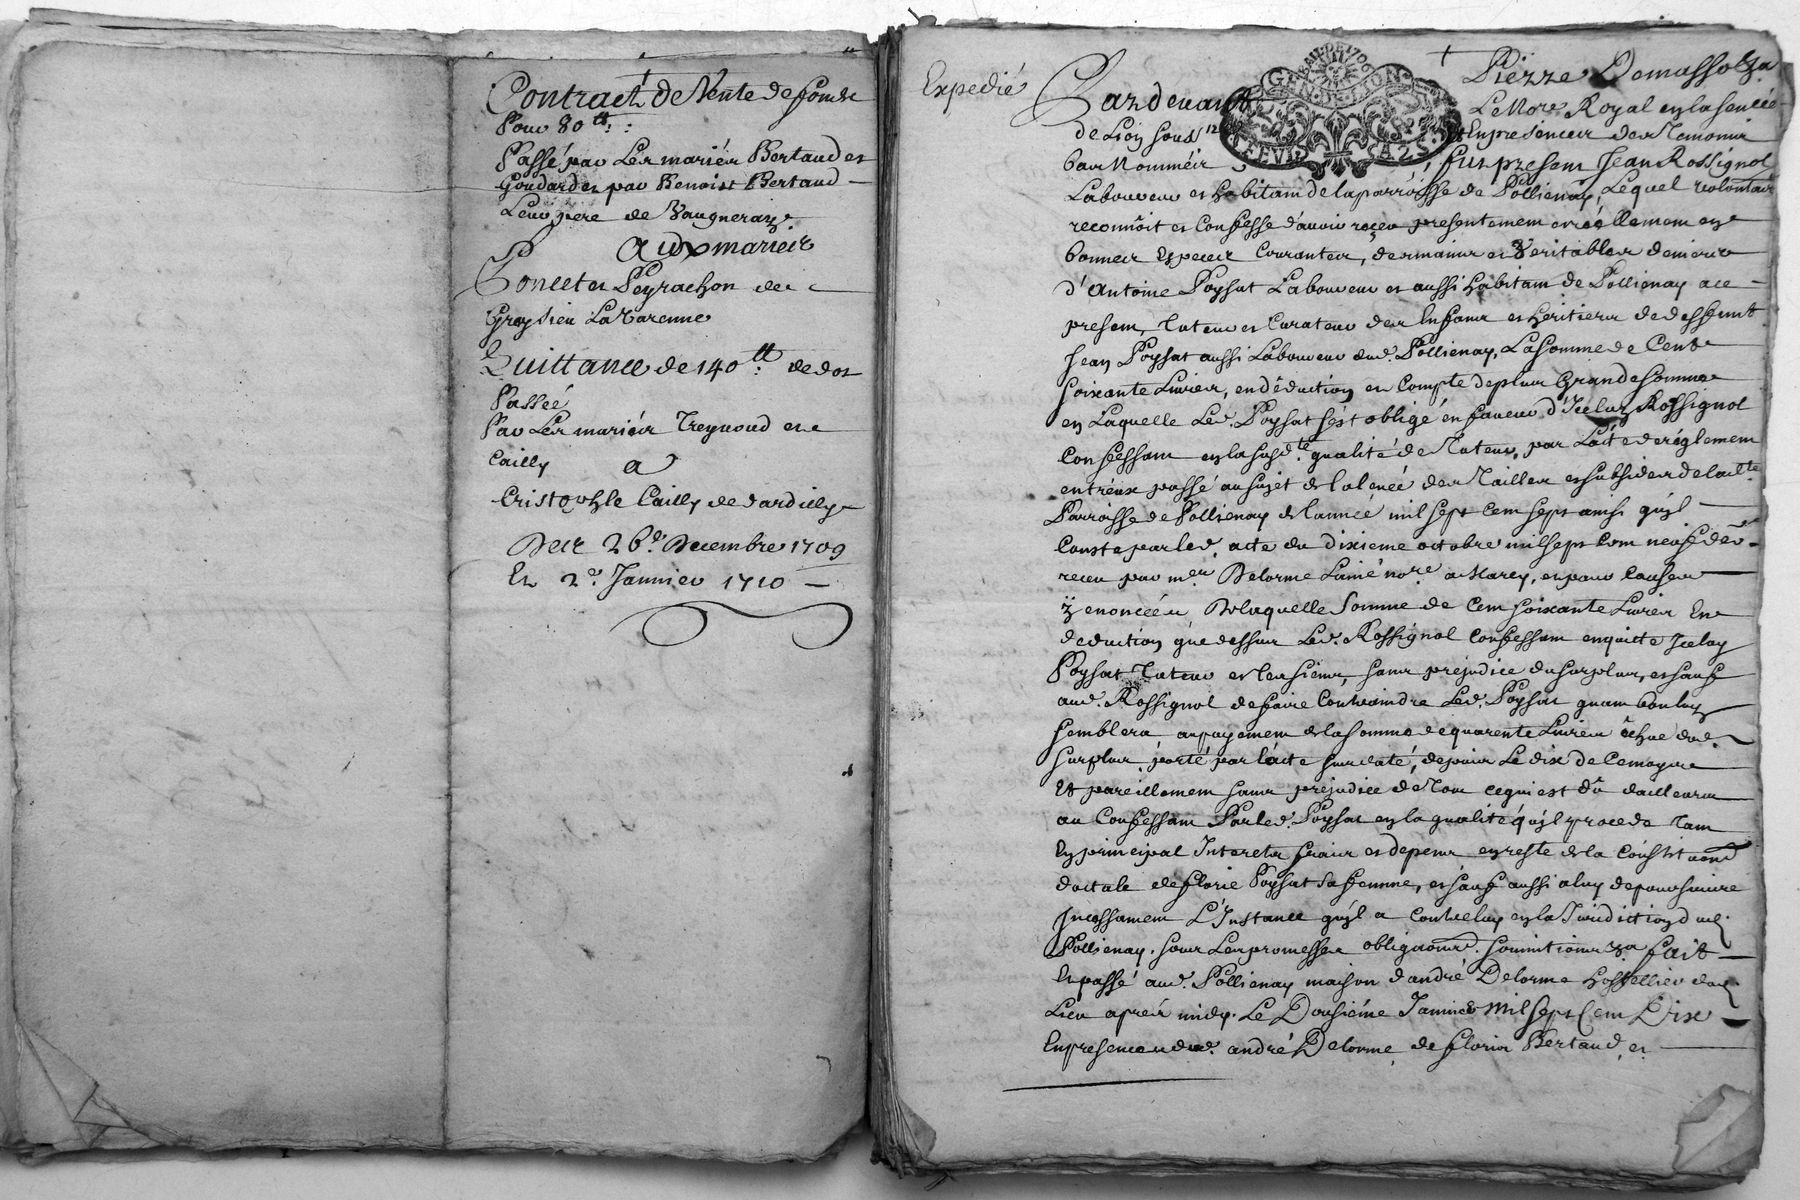 Contract de Vente de fonds
Pour 80 tt :
Passé par Les mariés Bertaud et
Goudard et par Benoist Bertaud
Leur pere de Vaugneray
aux mariés
Poncet et Peyrachon de
Gresieu La Varenne
Quittance de 140 tt de dot
Passée
Par Les mariés Treynoud et
Cailly a
Cristophle Cailly de dardilly
Des 26e Decembre 1709
Et 2e Janvier 1710
Expedié
GNAL DE 1706
GEN DE LYON
Pardevant Pierre Demasso
Le Nore Royal en la senécée
de Lion sous En presence des Temoins
bas Nommés fut present Jean Rossignol
Laboureur et habitant de la parroisse de Pollienay, Lequel volontaire
reconnoit et Confesse d'avoir reçeu presentement et réellement en
bonnes Especes Courantes, des mains et Veritables deniers
d'Antoine Poysat Laboureur et aussi habitant de Pollienay ace
present, Tuteur et Curateur des Enfans et héritiers de deffunt
Jean Poysat aussi Laboureur dud. Pollienay, La somme de Cent
soixante Livres, en déduction et Compte de plus Grande somme
en Laquelle Led. Poysat s'est obligé en faveur d'Iceluy Rossignol
Confessant en la susdte qualité de Tuteur, par L'acte de réglement
entreux passé au sujet de la levée des Tailles et subsides de ladte
Parroisse de Pollienay de l'année mil sept cent sept ainsi qu'il
Conste par led. acte du dixieme octobre mil sept cent neuf
receu par me Delorme L'ainé nore a Marcy, et pour Causes
ÿ enoncées, De laquelle somme de Cent soixante Livres En
deduction que dessus Led. Rossignol Confessant en quitte Iceluy
Poysat Tuteur et les siens, sans prejudice du surplus, et sauf
aud. Rossignol de faire Contraindre Led. Poysat quant bon luy
semblera au payement de la somme de quarente Livres échue dud.
surplus, porté par l'acte susdaté, depuis Le dix de Ce moys
Et pareillement sans prejudice de Tout ce qui est dû dailleurs
au Confessant Par led. Poysat en la qualité qu'il procede Tant
En principal Interets frais et depens en reste de la Constituaon
doctale de florie Poysat sa femme, et sauf aussi a luy de poursuivre
Incessament L'Instance qu'il a Contreluy en la Juridiction dud.
Pollienay. sous Les promesses obligaons. soumitions &a fait
Et passé aud. Pollienay maison d'andré Delorme hostellier dud
Lieu aprés midy. Le Dousiéme Janvier Mil sept Cent Dix
En presence dud. andré Delorme, de floris Bertaud, et